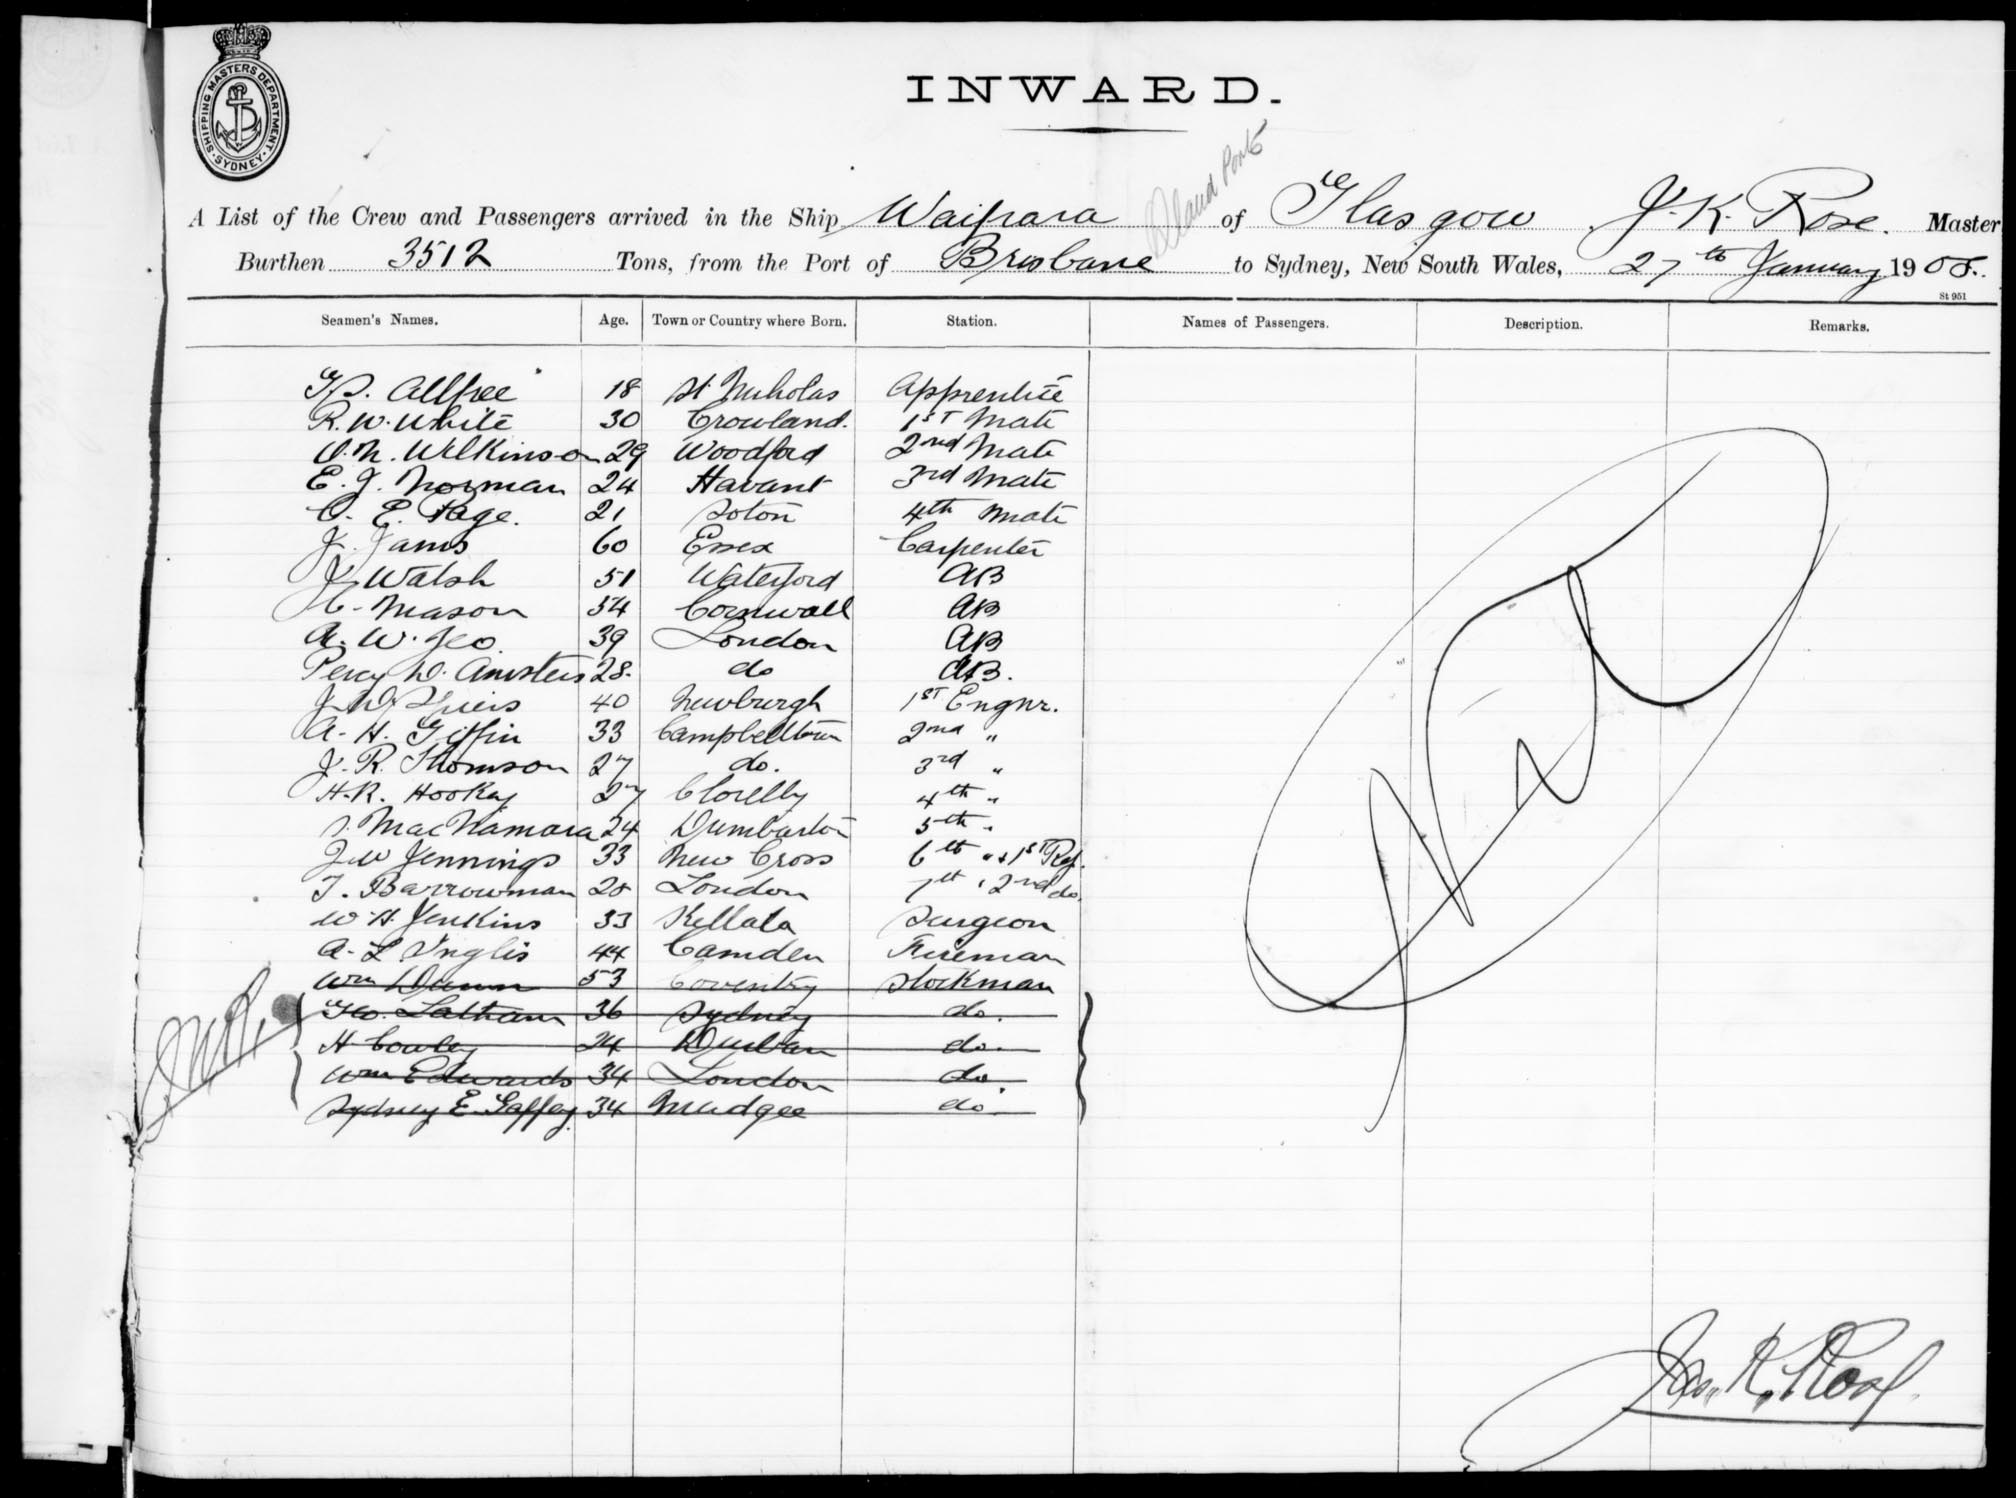 SHIPPING MASTERS DEPARTMENT · SYDNEY ·
INWARD.
A List of the Crew and Passengers arrived in the Ship Waipara of Glasgow J. K. Rose. Master
Burthen 3512 Tons, from the Port of Brisbane to Sydney, New South Wales, 27th January 1908.
St 951
Seamen's Names. Age. Town or Country where Born. Station. Names of Passengers. Description. Remarks.
Allfree 18 St. Nicholas Apprentice
R. W. White 30 Crowland. 1st Mate
Wilkinson 29 Woodford 2nd Mate
E. J. Norman 24 Havant 3rd Mate
C. E. Page. 21 Soton 4th Mate
J. Janis 60 Essex Carpenter
J. Walsh 51 Waterford AB
C. Mason 54 Cornwall AB
A. W. Geo. 39 London AB
Percy W. 28. do AB.
J W Spiers 40 Newburgh 1st Engnr.
A. H. Giffin 33 Campbelltown 2nd "
J. R. Thomson 27 do. 3rd "
H. R. Hookey 27 Clovelly 4th "
MacNamara 24 Dumbarton 5th "
J W Jennings 33 New Cross 6th " & 1st Ref.
T. Barrowman 20 London 7th " 2nd do.
W. H. Jenkins 33 Killala Surgeon
A. L. Inglis 44 Camden Fireman
Wm Dunn 53 Coventry Stockman
Geo. Latham 36 Sydney do.
H Cowley 24 Durban do.
Wm Edwards 34 London do.
Sydney E. Gaffey 34 Mudgee do.
Jas. K. Rose